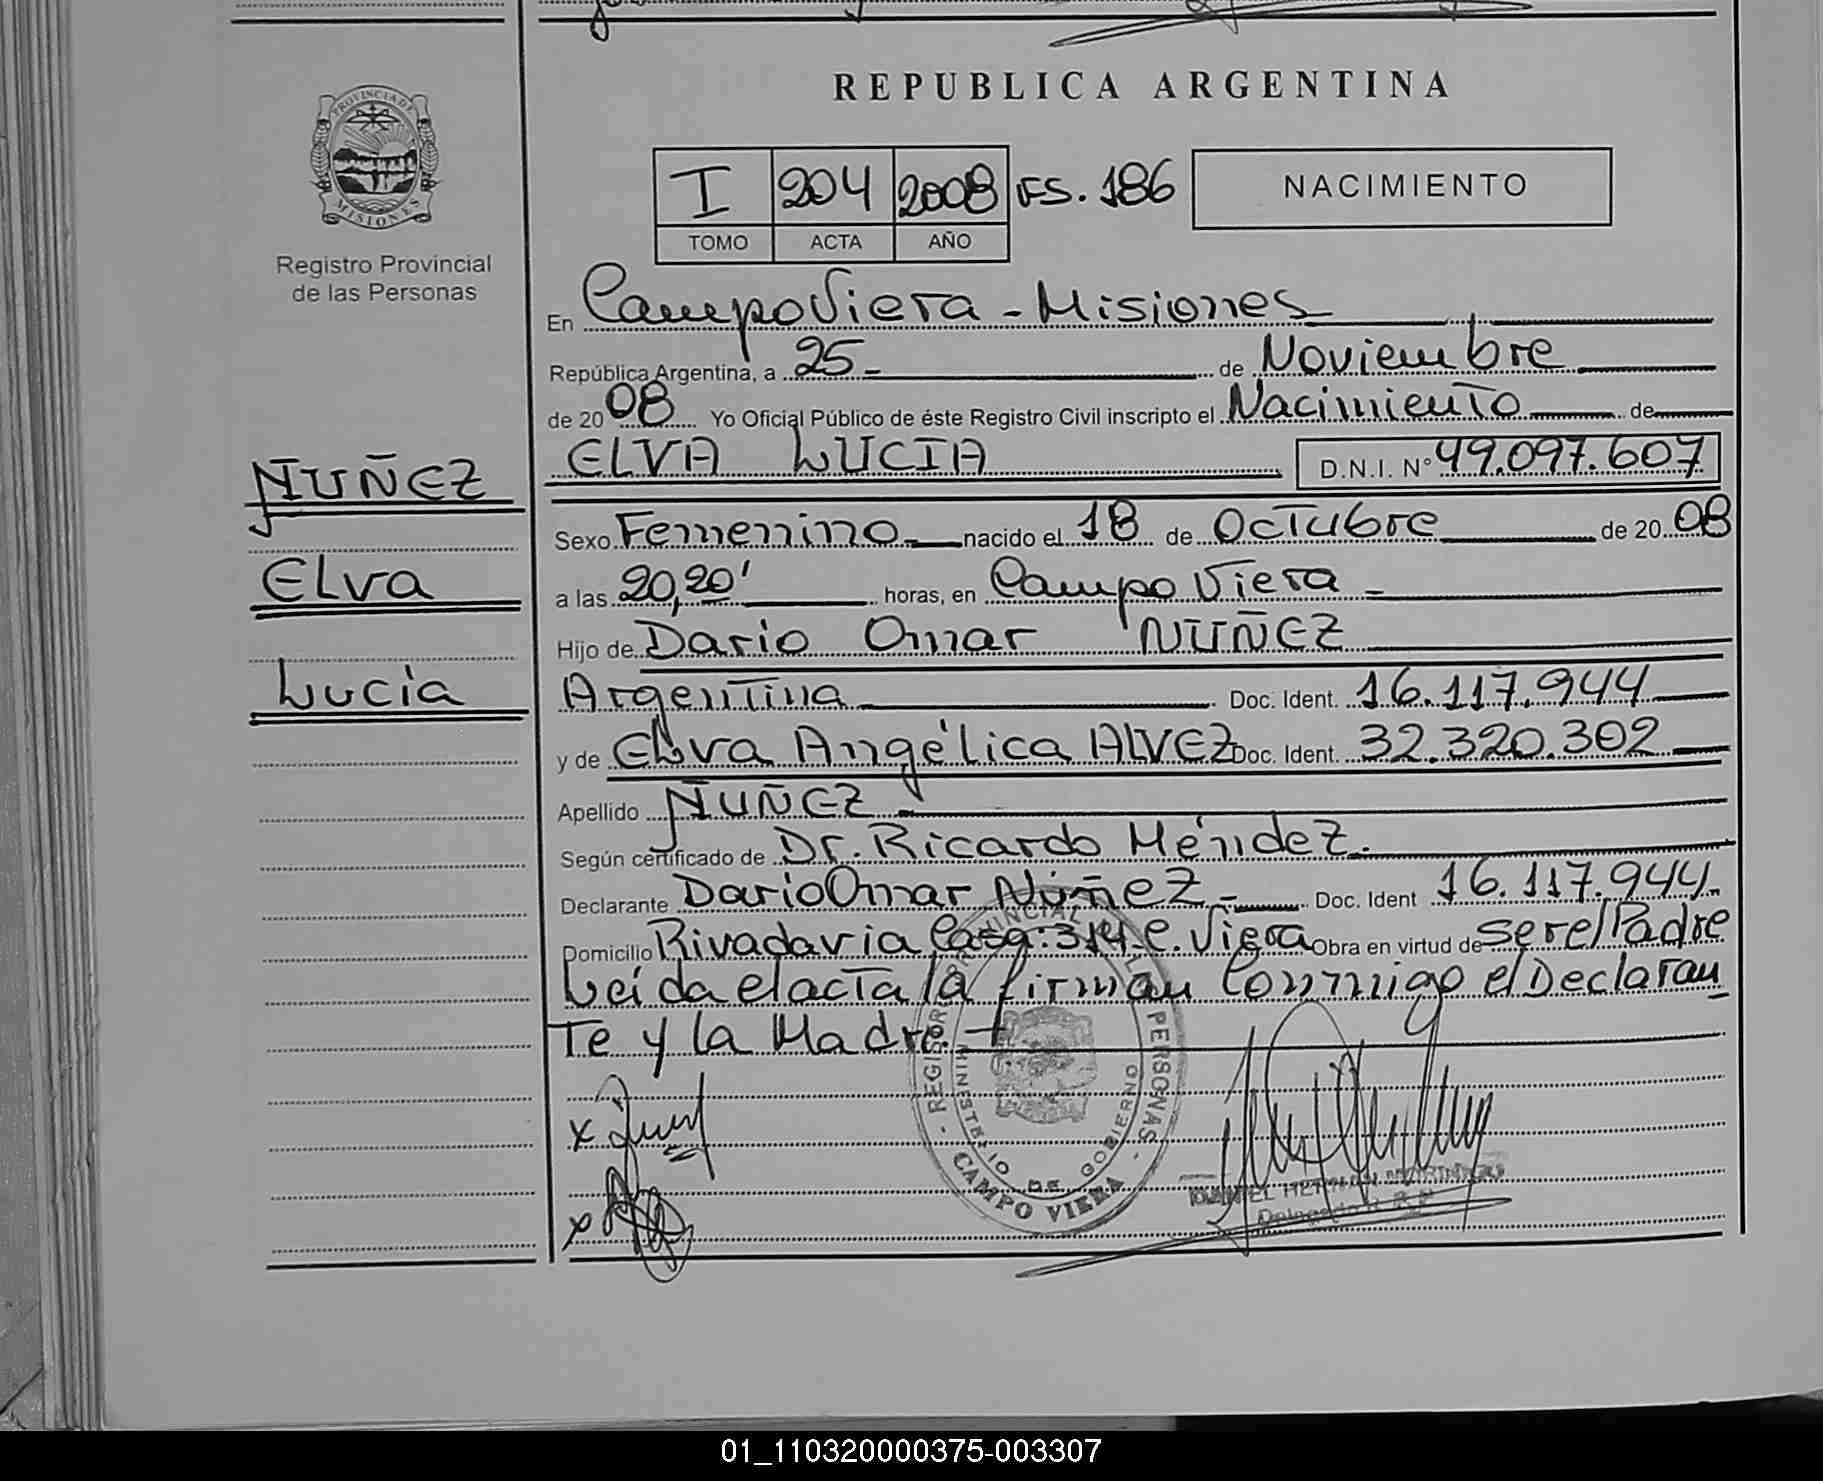 REPUBLICA ARGENTINA
PROVINCIA DE
MISIONES
Registro Provincial
de las Personas
I 204 2008 FS. 186
TOMO ACTA AÑO
NACIMIENTO
NUÑEZ
Elva
Lucia
En Campo Viera - Misiones
República Argentina, a 25 - de Noviembre
de 2008 Yo Oficial Público de éste Registro Civil inscripto el Nacimiento de
ELVA LUCIA D.N.I. Nº 49.097.607
Sexo Femenino nacido el 18 de Octubre de 2008
a las 20,20' horas, en Campo Viera -
Hijo de Dario Omar NUÑEZ
Argentina Doc. Ident. 16.117.944
y de Elva Angélica ALVEZ Doc. Ident. 32.320.302
Apellido NUÑEZ
Según certificado de Dr. Ricardo Méndez.
Declarante Dario Omar Núñez - Doc. Ident 16.117.944
Domicilio Rivadavia Casa: 314 C. Viera Obra en virtud de ser el Padre
Leída el acta la firman Conmigo el Declaran
Te y la Madre.
REGISTRO PROVINCIAL DE LAS PERSONAS
MINISTERIO DE GOBIERNO
- CAMPO VIERA -
x
x
01_110320000375-003307